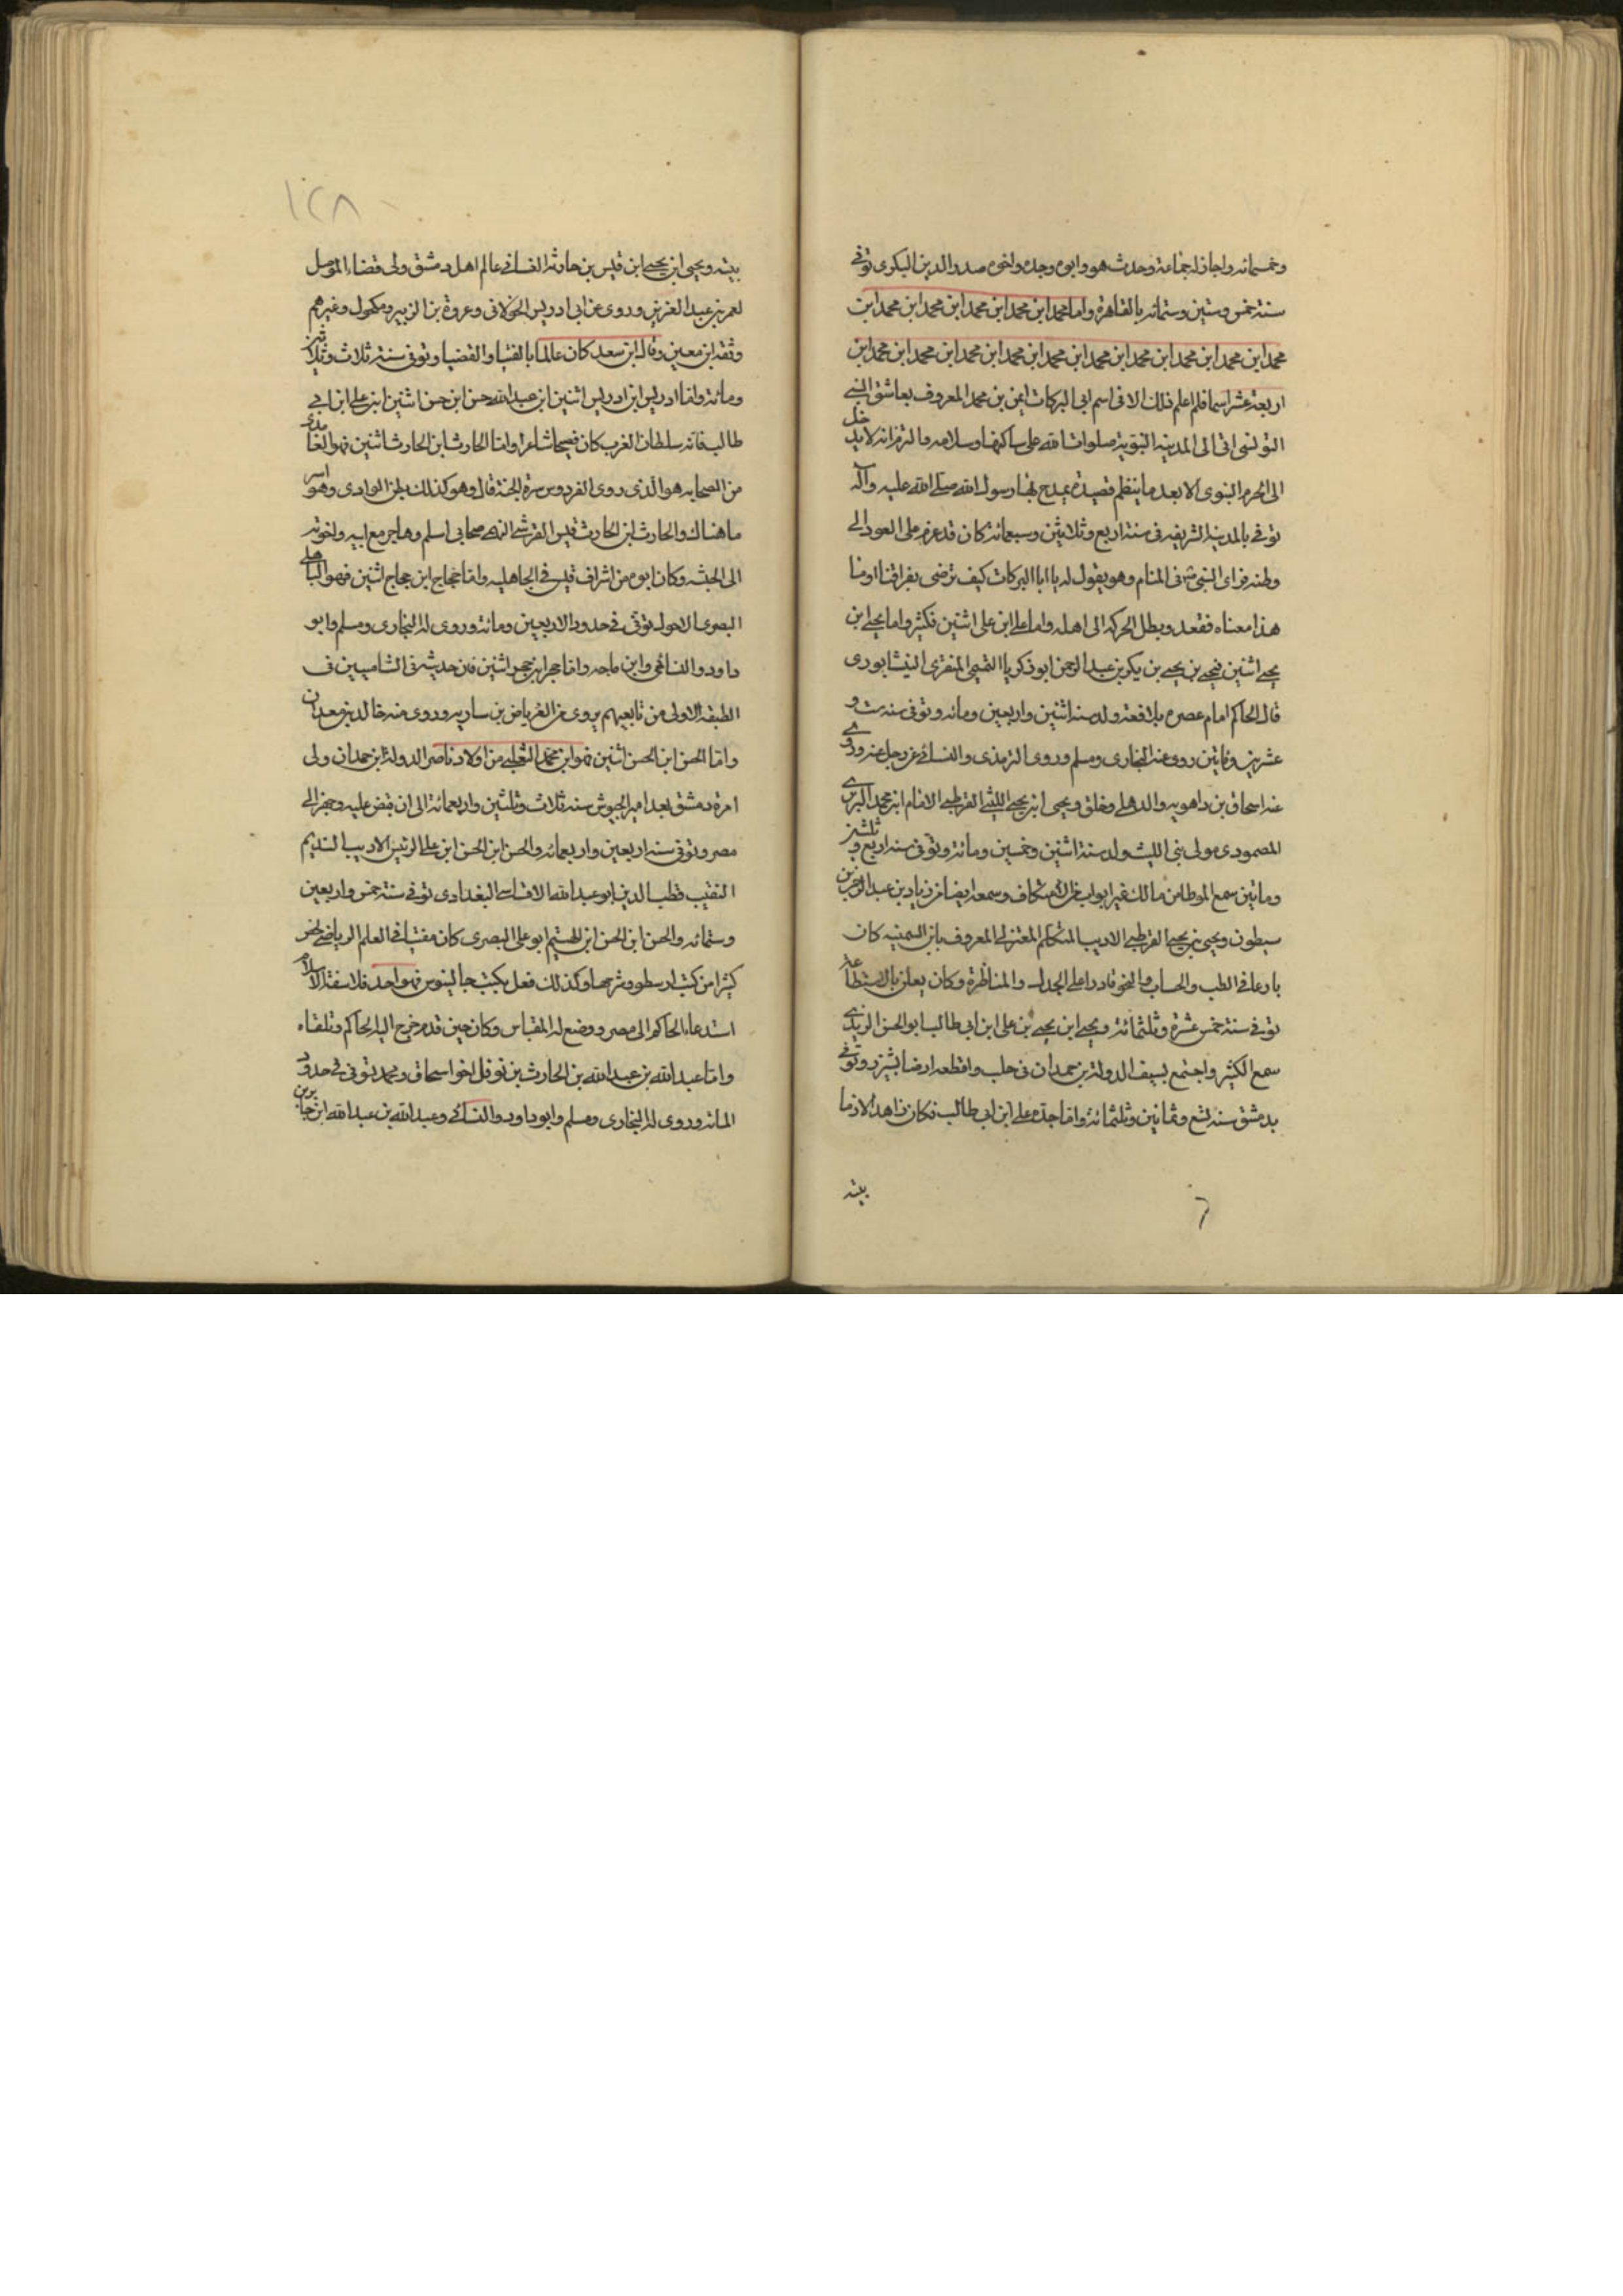 وخمسمائه واجاز له جماعة وحدث هو وابوه وجده واخوه صدر الدين البكرى توفى
سنة خمس وستين وستمائه بالقاهرة واما محمد ابن محمد ابن محمد ابن محمد ابن محمد ابن محمد ابن
محمد ابن محمد ابن محمد ابن محمد ابن محمد ابن محمد ابن محمد ابن محمد ابن محمد ابن محمد ابن
اربعة عشر اسما فلم اعلم ذلك الا فى اسم ابى البركات ايمن بن محمد المعروف بعاشق النبى
التونسى اتى الى المدينه النبوية صلوات الله على ساكنها وسلامه والتزم انه لا يدخل
الى الحرم النبوى الا بعد ما ينظم قصيدة يمدح بها رسول الله صلى الله عليه وآله
توفى بالمدينة الشريفه فى سنة اربع وثلاثين وسبعمائة كان قد عزم على العود الى
وطنه فراى النبى فى المنام وهو يقول له يا ابا البركات كيف ترضى بفراقنا او ما
هذا معناه فقعد وبطل الحركه الى اهله واما على ابن على اثنين فكثير واما يحيى ابن
يحيى اثنين فيحيى بن يحيى بن بكر بن عبد الرحمن ابو زكريا التميمى المنقرى النيشابورى
قال الحاكم امام عصره بلا دافعة ولد سنة اثنتين واربعين ومائه وتوفى سنه ست و
عشرين ومايتين روى عنه البخارى ومسلم وروى الترمذى والنسائى عن رجل عنه وروى
عنه اسحاق بن راهويه والذهلى وخلق ويحيى ابن يحيى الليثى القرطبى الامام ابن محمد البربرى
المصمودى مولى بنى الليث ولد سنة اثنتين وخمسين ومائة وتوفى سنه اربع وثلثين
ومايتين سمع الموطا من مالك غير ابواب من الاعتكاف وسمعه ايضا من زياد بن عبد الرحمن
سبطون ويحيى بن يحيى القرطبى الاديب المتكلم المعتزلى المعروف بابن السمينه كان
بارعا فى الطب والحساب والنحو قادرا على الجدل والمناظرة وكان يعلن بالاستطاعه
توفى سنة خمس عشرة وثلثمائة ويحيى ابن يحيى بن على ابن ابى طالب ابو الحسن الزيدى
سمع الكثير واجتمع بسيف الدولة بن حمدان فى حلب واقطعه ارضا بشيزر وتوفى
بدمشق سنه تسع وثمانين وثلثمائة واما جده على ابن ابى طالب فكان زاهدا لازما
بيته
٦
١٢٨
بيته ويحيى ابن يحيى ابن قيس بن حارثه الغسانى عالم اهل دمشق ولى قضاء الموصل
لعمر بن عبد العزيز وروى عن ابى ادريس الخولانى وعروة بن الزبير ومكحول وغيرهم
وثقه ابن معين وقال ابن سعد كان عالما بالفتيا والقضيا وتوفى سنة ثلاث وثلاثين
ومائة واما ادريس ابن ادريس اثنين ابن عبد الله حسن ابن حسن اثنين ابن على ابن ابى
طالب فانه سلطان الغرب كان فصيحا شاعرا واما الحارث ابن الحارث اثنين فهو الغامدى
من الصحابه هو الذى روى الفردوس سرة الجنة قال وهو كذلك بطن الوادى وهو اسر
ما هناك والحارث ابن الحارث قيس القرشى السهمى صحابى اسلم وهاجر مع ابيه واخوته
الى الحبشه وكان ابوه من اشراف قيس فى الجاهليه واما حجاج ابن حجاج اثنين فهو الباهلى
البصرى الاحول توفى فى حدود الاربعين ومائه وروى له البخارى ومسلم وابو
داود والنسائى وابن ماجه واما حجر ابن حجر اثنين فان حديثه فى الشاميين فى
الطبقة الاولى من تابعيهم يروى عن العرياض بن ساريه وروى عنه خالد بن معدان
واما الحسن ابن الحسن اثنين فهو ابن محمد التغلبى من اولاد ناصر الدوله ابن حمدان ولى
امرة دمشق بعد امير الجيوش سنه ثلاث وثلثين واربعمائة الى ان قبض عليه وجهز الى
مصر وتوفى سنه اربعين واربعمائه والحسن ابن الحسن ابن على الرئيس الاديب النديم
النقيب قطب الدين ابو عبد الله الاقساسى البغدادى توفى سنة خمس واربعين
وستمائه والحسن ابن الحسن ابن الهيثم ابو على البصرى كان مفتيا فى العلم الرياضى لخص
كثيرا من كتب ارسطو وشرحها وكذلك فعل بكتب جالينوس فهو احد فلاسفة الاسلام
استدعاه الحاكم الى مصر ووضع له المقياس وكان حين قدم خرج اليه الحاكم وتلقاه
واما عبد الله بن عبد الله بن الحارث بن نوفل اخو اسحاق ومحمد توفى فى حدود
المائه وروى له البخارى ومسلم وابو داود والنسائى وعبد الله بن عبد الله ابن جابر بن